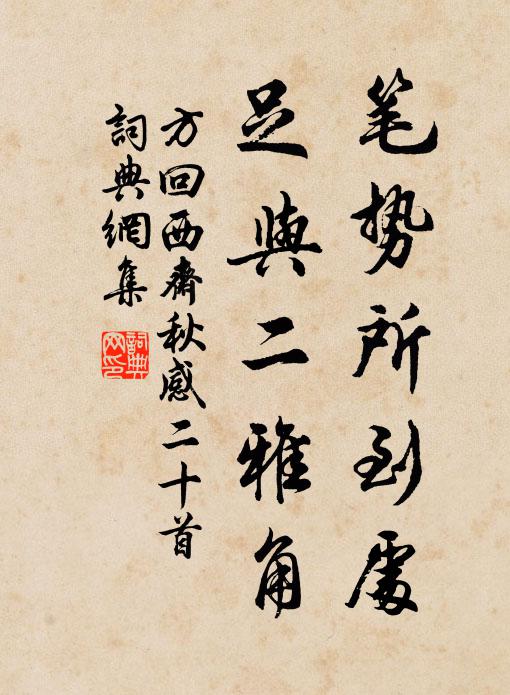 笔势所到處
足與二雅角
方回西齋秋感二十首
詞典網集
詞典
网印